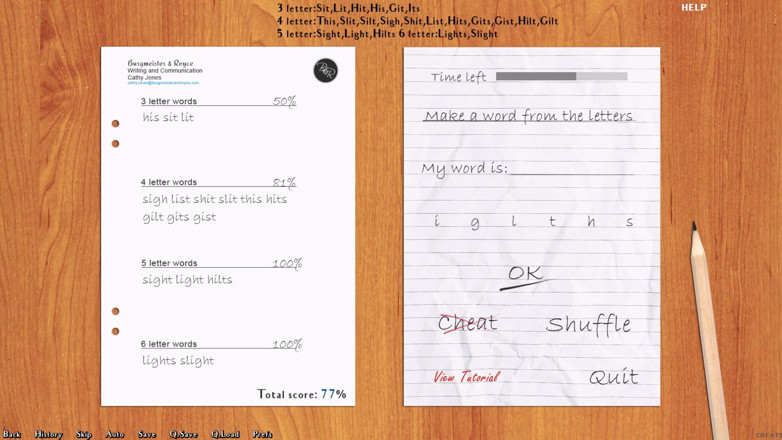 3 letter:Sit,Lit,Hit,His,Git,Its
HELP
4 letter:This,Slit,Silt,Sigh,Shit,List,Hits,Gits,Gist,Hilt,Gilt
5 letter:Sight,Light,Hilts 6 letter:Lights,Slight
Burgmeister & Royce
Writing and Communication
Cathy Jones
cathy.jones@burgmeisterandroyce.com
B&R
3 letter words 50%
his sit lit
4 letter words 81%
sigh list shit slit this hits
gilt gits gist
5 letter words 100%
sight light hilts
6 letter words 100%
lights slight
Total score: 77%
Time left
Make a word from the letters
My word is:
i g l t h s
OK
Cheat Shuffle
View Tutorial Quit
Back History Skip Auto Save Q.Save Q.Load Prefs